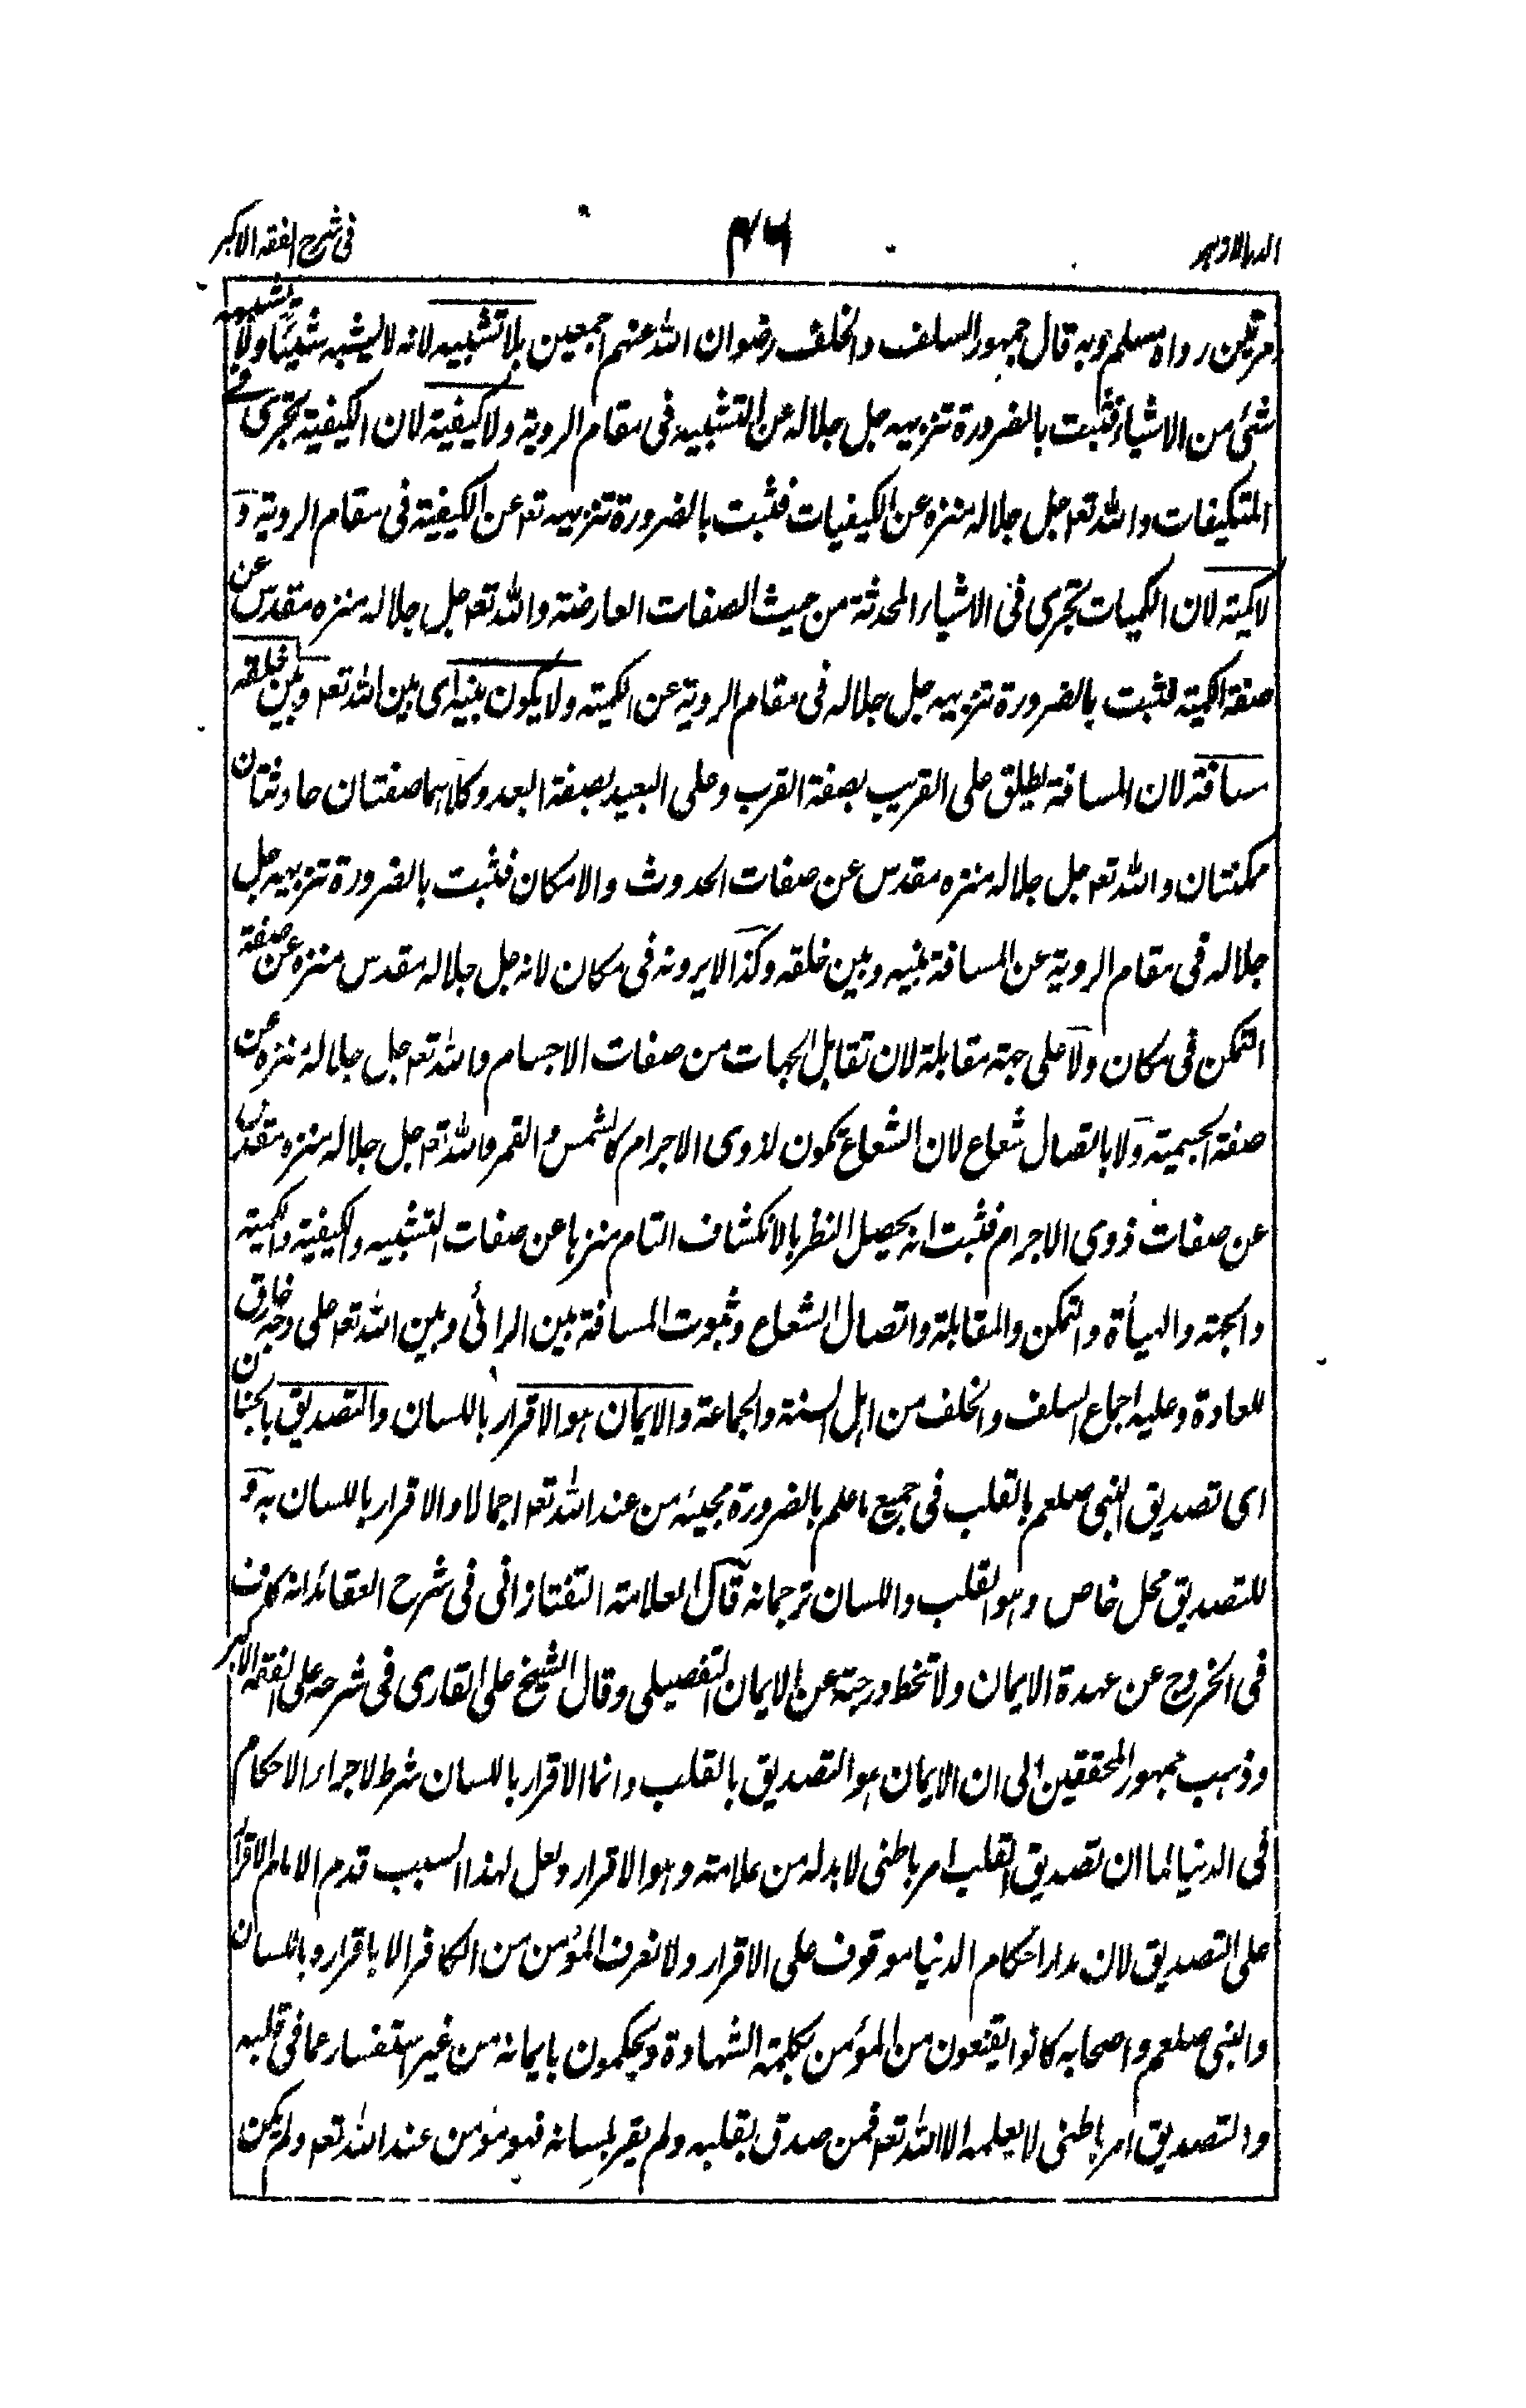 الدر الازهر ٤٦ فى شرح الفقه الاكبر
مرتين رواه مسلم وبه قال جمهور السلف والخلف رضوان الله عنهم اجمعين بلا تشبيه لانه لا يشبه شيئا ولا يشبهه
شئ من الاشياء فثبت بالضرورة تنزيهه جل جلاله عن التشبيه فى مقام الروية ولا كيفية لان الكيفية تجرى فى
المتكيفات والله تعم جل جلاله منزه عن الكيفيات فثبت بالضرورة تنزيهه تعم عن الكيفية فى مقام الروية و
لا كمية لان الكميات تجرى فى الاشياء المحدثة من حيث الصفات العارضة والله تعم جل جلاله منزه مقدس عن
صفة الكمية فثبت بالضرورة تنزيهه جل جلاله فى مقام الروية عن الكمية ولا يكون بينه اى بين الله تعم وبين خلقه
مسافة لان المسافة يطلق على القريب بصفة القرب وعلى البعيد بصفة البعد وكلاهما صفتان حادثتان
ممكنتان والله تعم جل جلاله منزه مقدس عن صفات الحدوث والامكان فثبت بالضرورة تنزيهه جل
جلاله فى مقام الروية عن المسافة بينه وبين خلقه وكذا لا يرونه فى مكان لانه جل جلاله مقدس منزه عن صفة
التمكن فى مكان ولا على جهة مقابلة لان تقابل الجهات من صفات الاجسام والله تعم جل جلاله منزه عن
صفة الجسمية ولا باتصال شعاع لان الشعاع تكون لذوى الاجرام كالشمس والقمر والله تعم جل جلاله منزه مقدس
عن صفات ذوى الاجرام فثبت انه يحصل النظر بالانكشاف التام منزها عن صفات التشبيه والكيفية والكمية
والجهة والهيأة والتمكن والمقابلة واتصال الشعاع وثبوت المسافة بين الرائى وبين الله تعم على وجه خارق
للعادة وعليه اجماع السلف والخلف من اهل السنة والجماعة والايمان هو الاقرار باللسان والتصديق بالجنان
اى تصديق النبى صلعم بالقلب فى جميع ما علم بالضرورة مجيئه من عند الله تعم اجمالا والاقرار باللسان به و
للتصديق محل خاص وهو القلب واللسان ترجمانه قال العلامة التفتازانى فى شرح العقائد انه كاف
فى الخروج عن عهدة الايمان ولا تحط درجته عن الايمان التفصيلى وقال الشيخ على القارى فى شرحه على الفقه الاكبر
وذهب جمهور المحققين الى ان الايمان هو التصديق بالقلب وانما الاقرار باللسان شرط لاجراء الاحكام
فى الدنيا لما ان تصديق القلب امر باطنى لا بد له من علامته وهو الاقرار ولعل لهذا السبب قدم الامام الاقرار
على التصديق لان مدار احكام الدنيا موقوف على الاقرار ولا نعرف المؤمن من الكافر الا باقراره باللسان
والنبى صلعم واصحابه كانوا يقنعون من المؤمن بكلمة الشهادة ويحكمون بايمانه من غير استفسار عما فى قلبه
والتصديق امر باطنى لا يعلمه الا الله تعم فمن صدق بقلبه ولم يقر بلسانه فهو مؤمن عند الله تعم ولم يكن